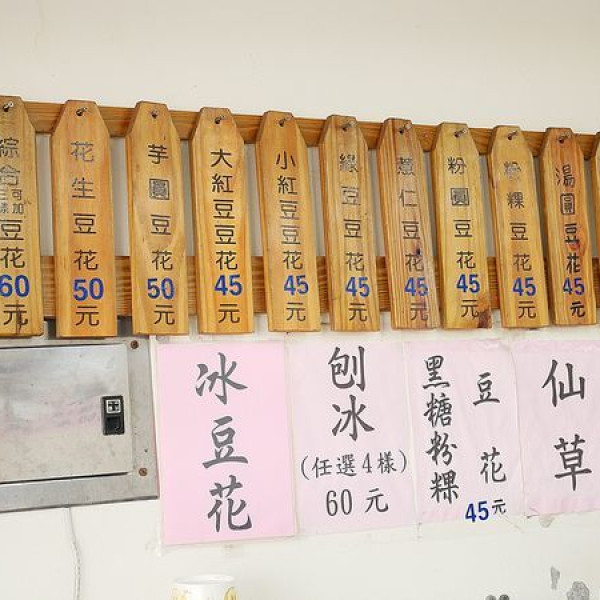 綜合豆花60元
可加三樣
花生豆花50元
芋圓豆花50元
大紅豆豆花45元
小紅豆豆花45元
綠豆豆花45元
薏仁豆花45元
粉圓豆花45元
粉粿豆花45元
湯圓豆花45元
冰豆花
刨冰
(任選4樣)
60元
黑糖粉粿
豆花
45元
仙草